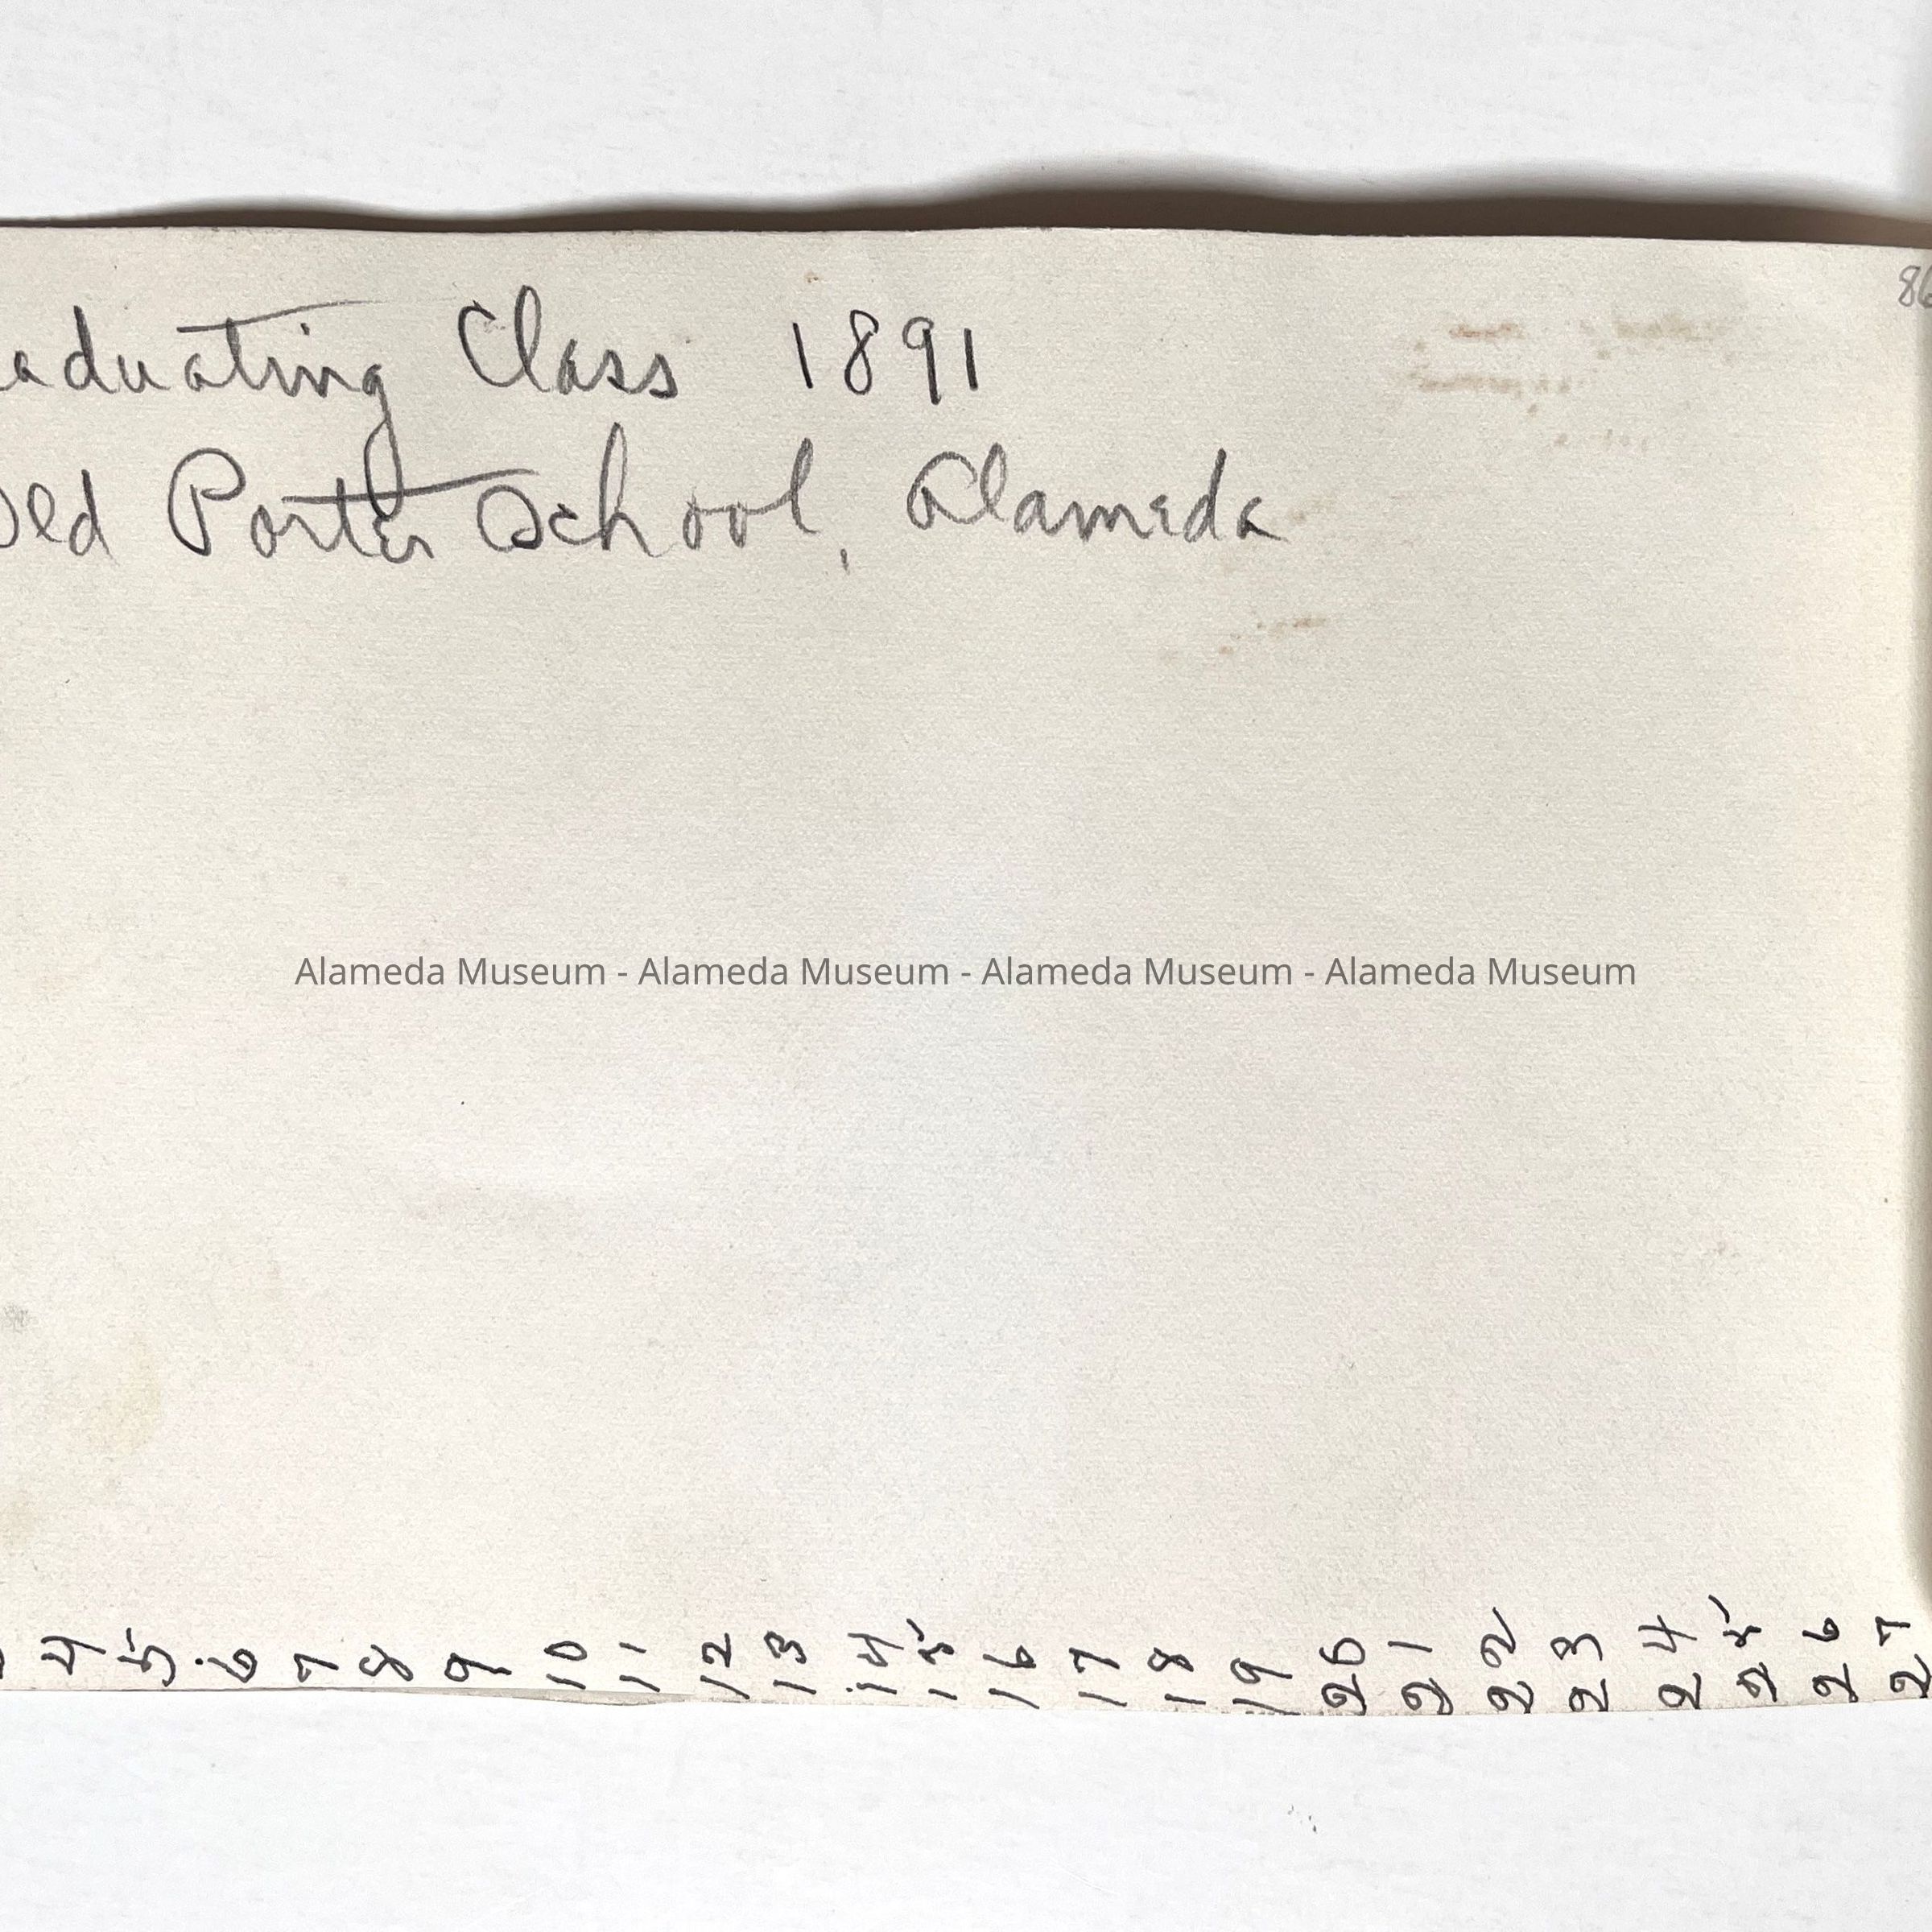 aduating Class 1891
Old Porter School, Alameda
Alameda Museum - Alameda Museum - Alameda Museum - Alameda Museum
4 5 6 7 8 9 10 11 12 13 14 15 16 17 18 19 20 21 22 23 24 25 26 27